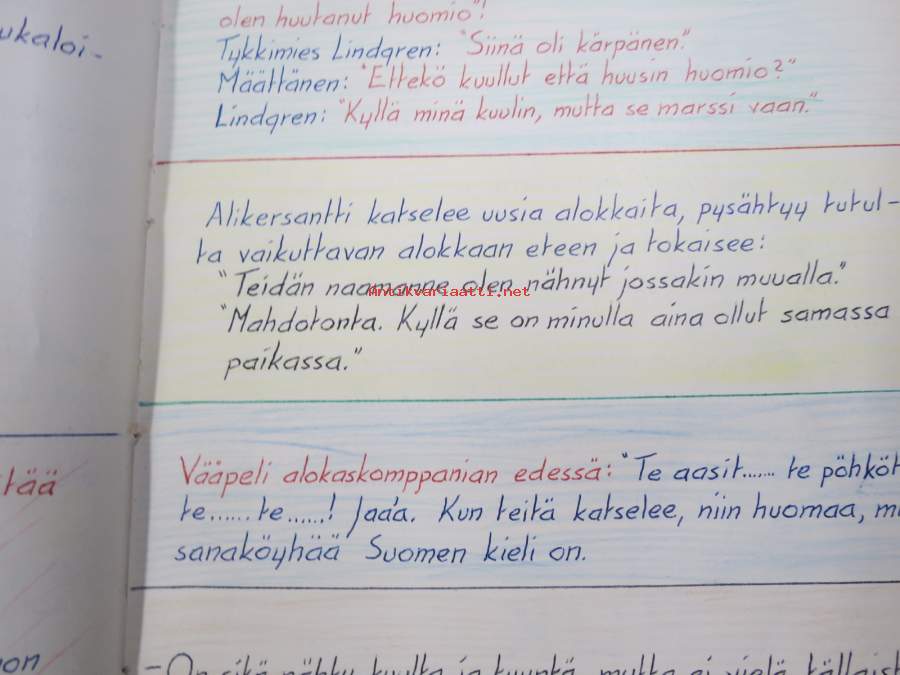 ukaloi-
olen huutanut huomio"!
Tykkimies Lindgren: "Siinä oli kärpänen."
Määttänen: "Ettekö kuullut että huusin huomio?"
Lindgren: "Kyllä minä kuulin, mutta se marssi vaan."
Alikersantti katselee uusia alokkaita, pysähtyy tutul-
ta vaikuttavan alokkaan eteen ja tokaisee:
"Teidän naamanne olen nähnyt jossakin muualla."
Antikvariaatti.net
"Mahdotonta. Kyllä se on minulla aina ollut samassa
paikassa."
Vääpeli alokaskomppanian edessä: "Te aasit....... te pöhköt
te...... te......! Jaa'a. Kun teitä katselee, niin huomaa, m
sanaköyhää Suomen kieli on.
tää
on